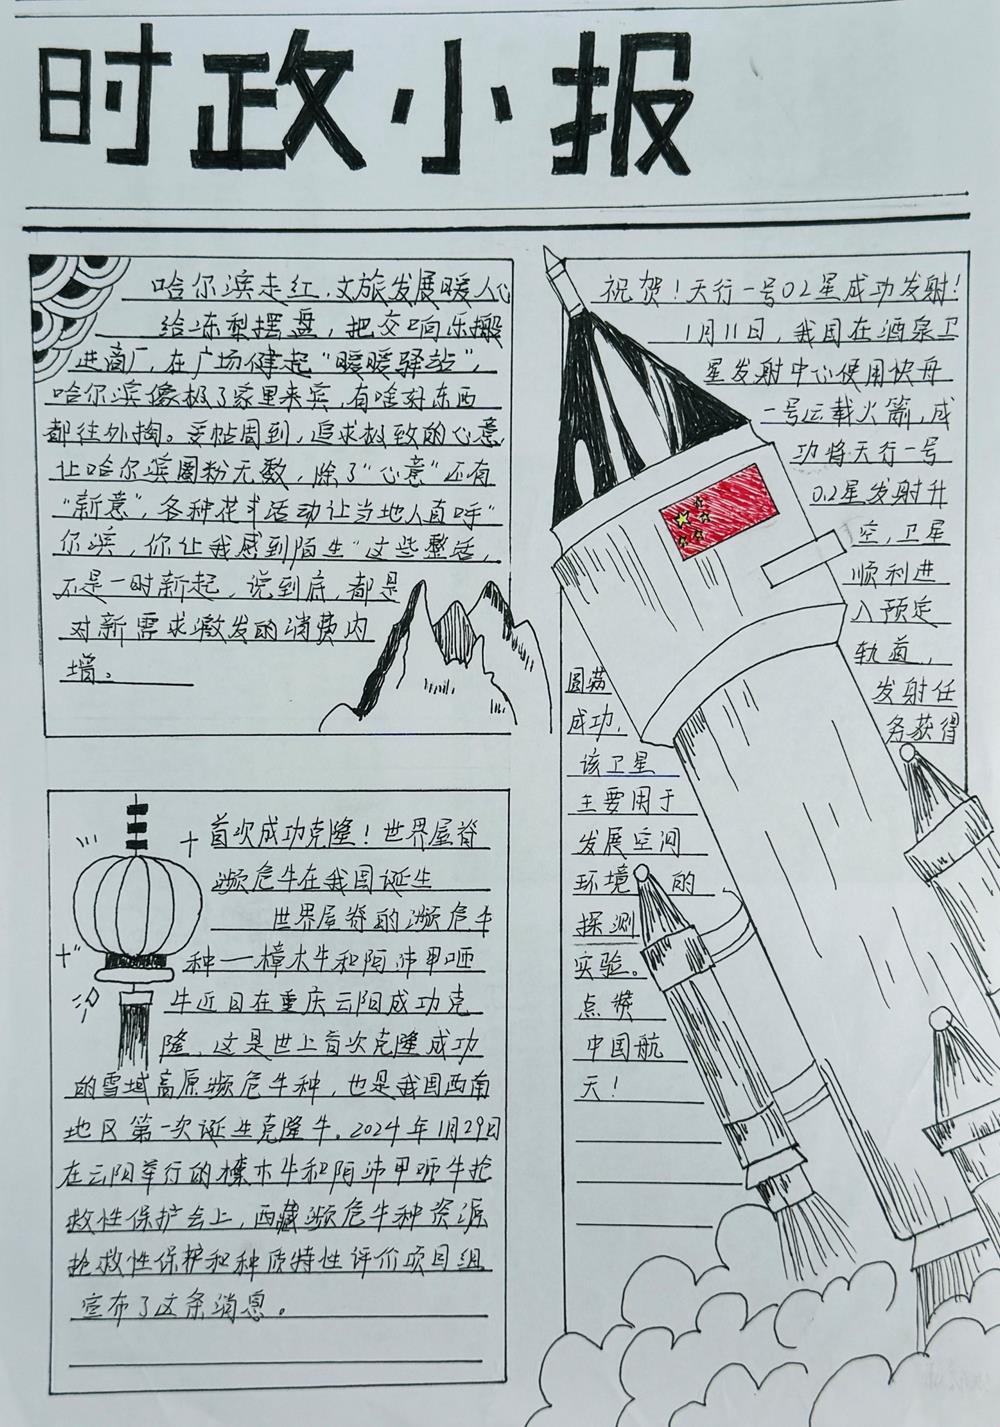 时政小报
哈尔滨走红,文旅发展暖人心
给冻梨摆盘,把交响乐搬
进商厂,在广场健起“暖暖驿站”,
哈尔滨像极了家里来宾,有啥好东西
都往外掏。妥帖周到,追求极致的心意
让哈尔滨圈粉无数,除了“心意”还有
“新意”,各种花式活动让当地人直呼“
尔滨,你让我感到陌生”这些整活,
不是一时新起,说到底,都是
对新需求激发的消费内
增。
首次成功克隆!世界屋脊
濒危牛在我国诞生
世界屋脊的濒危牛
种——樟木牛和阿沛甲咂
牛近日在重庆云阳成功克
隆,这是世上首次克隆成功
的雪域高原濒危牛种,也是我国西南
地区第一次诞生克隆牛.2024年1月29日
在云阳举行的樟木牛和阿沛甲咂牛抢
救性保护会上,西藏濒危牛种资源
抢救性保护和种质特性评价项目组
宣布了这条消息。
祝贺!天行一号02星成功发射!
1月11日,我国在酒泉卫
星发射中心使用快舟
一号运载火箭,成
功将天行一号
02星发射升
空,卫星
顺利进
入预定
轨道,
发射任
务获得
圆满
成功.
该卫星
主要用于
发展空间
环境的
探测
实验。
点赞
中国航
天!